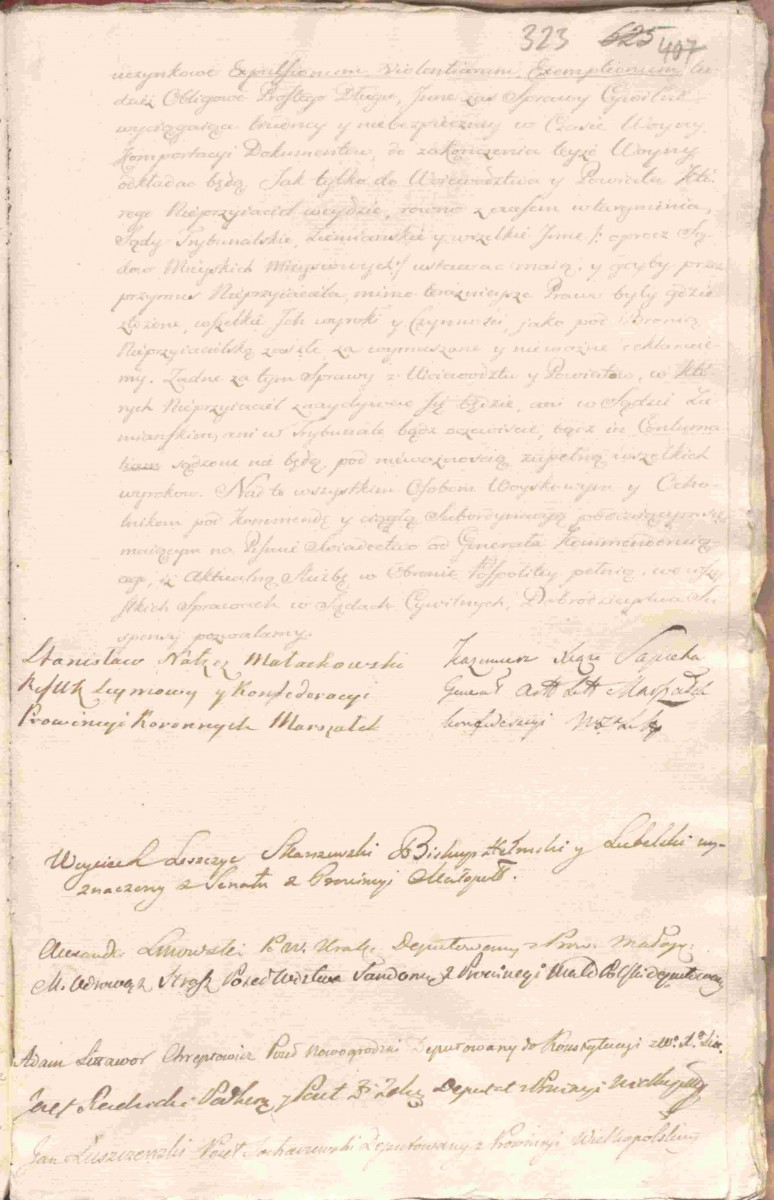 323 625 407
uczynkowe Expulsionum violentiarum, Exemptionum tu-
dzież Obligowe Prostego Długu, Inne zaś Sprawy Cywilne
wyciągaiące trudney y niebezpieczney w Czasie Woyny
Komportacyi Dokumentow, do zakończenia teyże Woyny
odkładać będą. Jak tylko do Woiewodztwa y Powiatu Któ-
rego Nieprzyiaciel weydzie, rowno z czasem wtargnienia,
Sądy Trybunalskie, Ziemiańskie y wszelkie Inne /: oprocz Są-
dow Mieyskich Mieyscowych :/ ustawać maią, y gdyby przez
przymus Nieprzyiaciela, mimo teraznieysze Prawo były gdzie
złożone, wszelkie Ich wyroki y Czynności, jako pod Bronią
Nieprzyiacielską zaszłe, za wymuszone y nieważne reklamuie-
my. Żadne za tym Sprawy z Woiewodztw y Powiatow, w Któ-
rych Nieprzyiaciel znaydywać Się będzie, ani w Sądzie Zie-
miańskim, ani w Trybunale bądź oczewiście, bądź in Contuma-
tiam sądzone na będą pod nieważnością zupełną wszelkich
wyrokow. Nad to wszystkim Osobom Woyskowym y Ocho-
tnikom pod Kommendę y ciągłą Subordynacyą poddaiącym się
maiącym na Pismie Swiadectwo od Generała Kommenderuią-
cego, iż Aktualną Służbę w Obronie Rzpospolitey pełnią, we wszy-
stkich Sprawach w Sądach Cywilnych, Dobrodzieystwa Su-
spensy pozwalamy.
Stanisław Nałęcz Małachowski
Referendarz Seymowy y Konfederacyi
Prowincyi Koronnych Marszałek
Kazimierz Xiąże Sapieha
Generał Artt Litt Marszałek
konfederacyi W. X. Litt
Woyciech Leszczyc Skarszewski Biskup Chełmski y Lubelski wy-
znaczony z Senatu z Prowincyi Małopoll.
Alexander Linowski P. W. Krak. Deputowany z Prow. Małopo:
M. Odrowąż Strasz Poseł Wdztwa Sandom: z Prowincyi Mało Polski deputowany
Adam Littawor Chreptowicz Poseł Nowogrodzki Deputowany do Konstytucyi z Wo. Xo. Litt.
Jozef Radzicki Podkom. y Poseł Z. Zakr. Deputat z Prowincyi Wielkopolskiey
Jan Łuszczewski Poseł Sochaczewski Deputowany z Prowincyi Wielkopolskiey